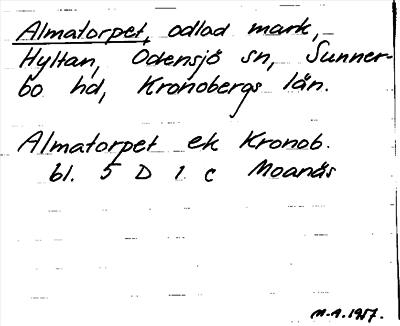 Almatorpet, odlad mark,
Hyltan, Odensjö sn, Sunner-
bo hd, Kronobergs län.
Almatorpet ek Kronob.
bl. 5 D 1 c Moanäs
M.A. 1957.